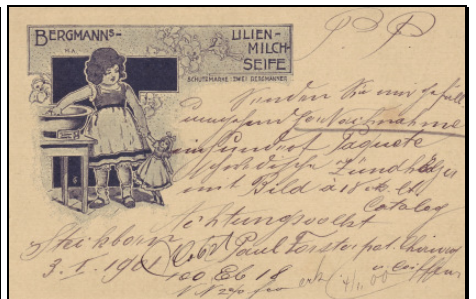 BERGMANNS-
LILIEN-
MILCH-
SEIFE
SCHUTZMARKE: ZWEI BERGMÄNNER
P P
Senden Sie mir gefäll
umgehend per Nachnahme
ein Hundert Paquete
schwedische Zündhölzer
mit Bild à 18
Catalog
Achtungsvollst
Steckborn
3. I. 1901
Paul Forster pat. Chirurg
u. Coiffeur
100 Eb 18